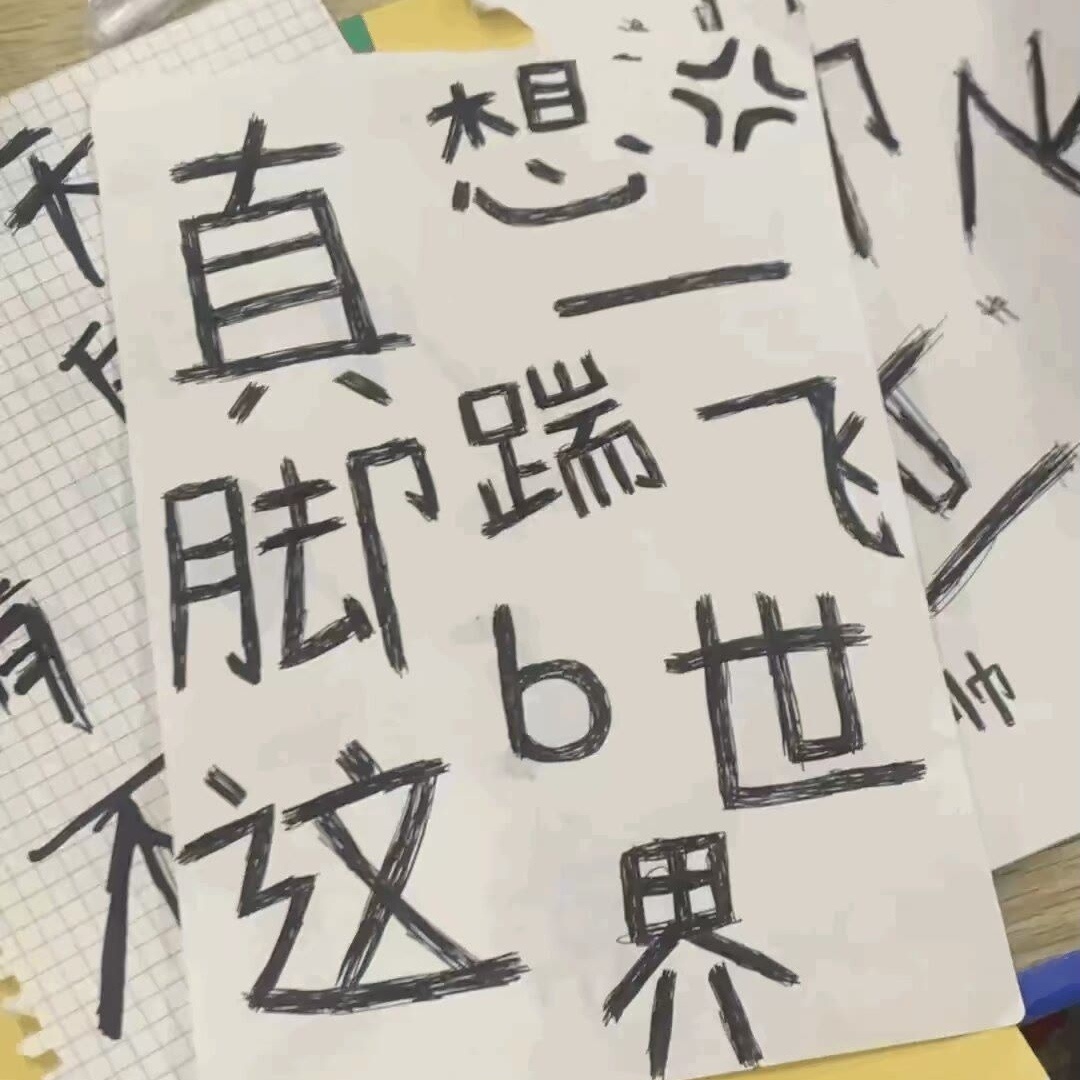 真想一
脚踹飞
这b世
界